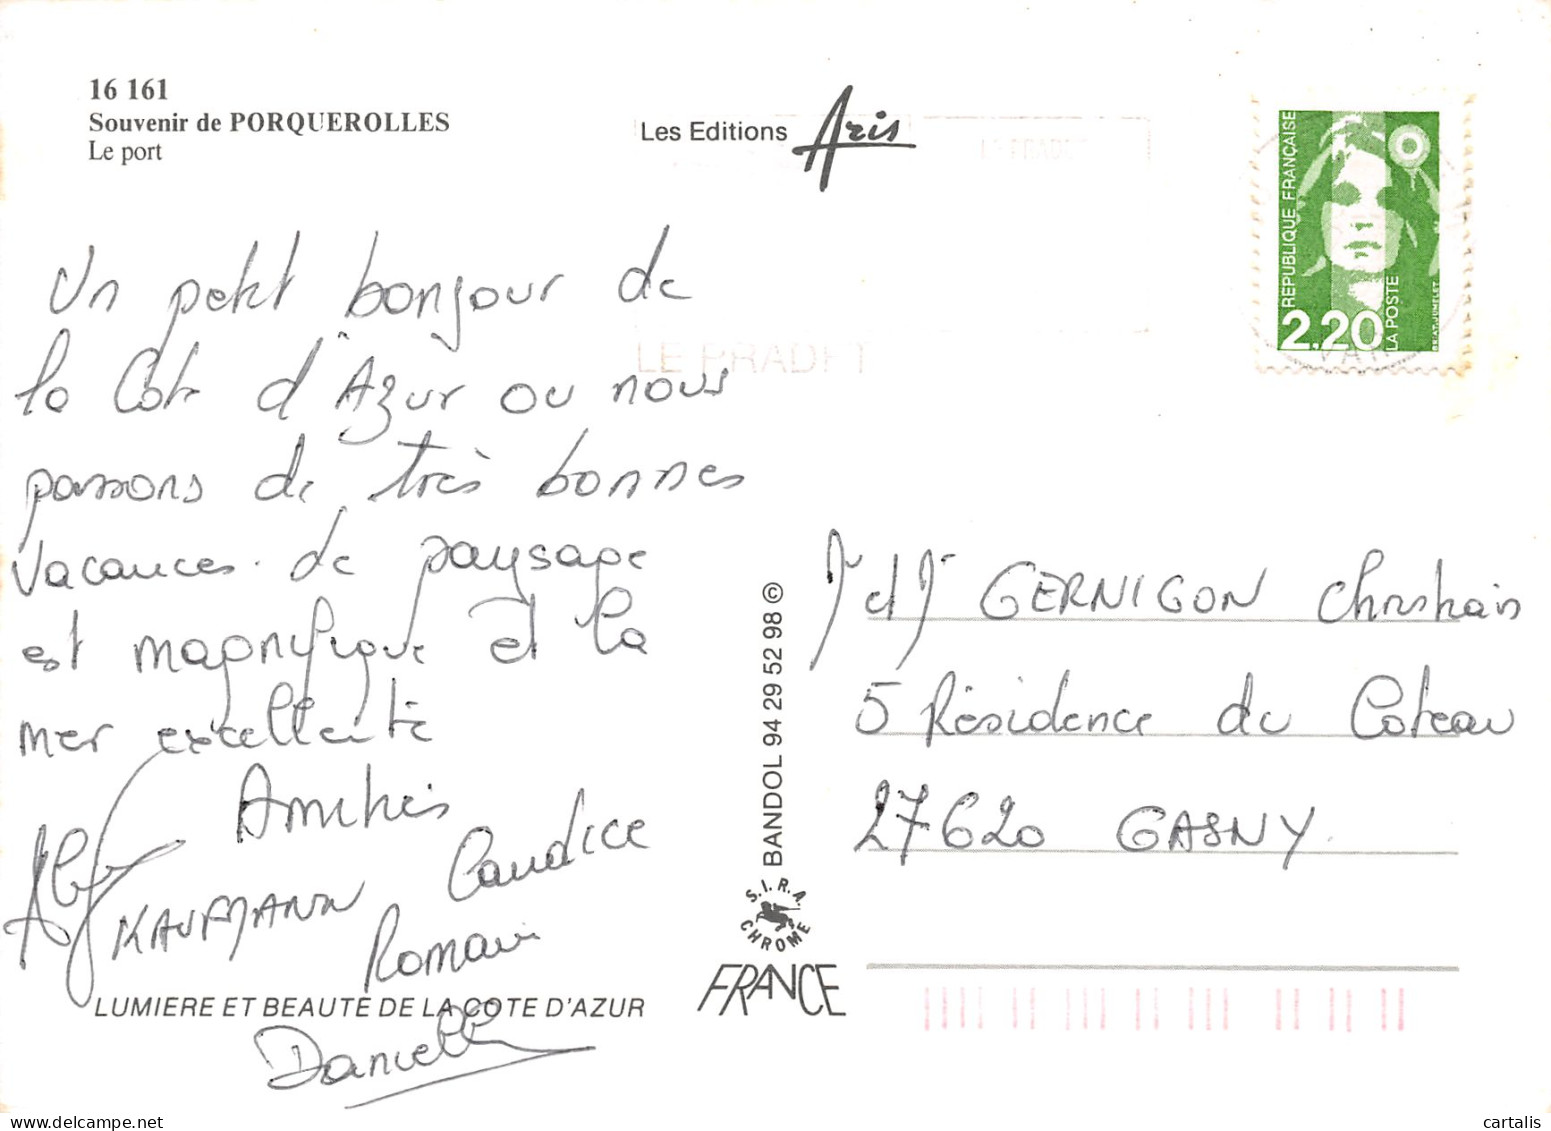 16 161
Souvenir de PORQUEROLLES
Le port
Les Editions Aris
LE PRADET
REPUBLIQUE FRANÇAISE
2,20
LA POSTE
BRIAT.JUMELET
LE PRADET
Un petit bonjour de
la Cote d'Azur ou nous
passons de très bonnes
vacances. de paysage
est magnifique et la
mer excellente
Amitiés
KAUFMANN Candice
Romain
Danielle
LUMIERE ET BEAUTÉ DE LA COTE D'AZUR
BANDOL 94 29 52 98 ©
S.I.R.A.
CHROME
FRANCE
GERNIGON Christian
5 Résidence du Coteau
27620 GASNY
cartalis